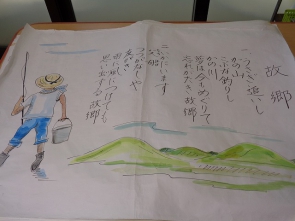 故郷
一、うさぎ追いし
かの山
こぶな釣りし
かの川
夢は今もめぐりて
忘れがたき故郷
二、いかにいます
父母
つつがなしや
友がき
雨に風につけても
思い出ずる故郷